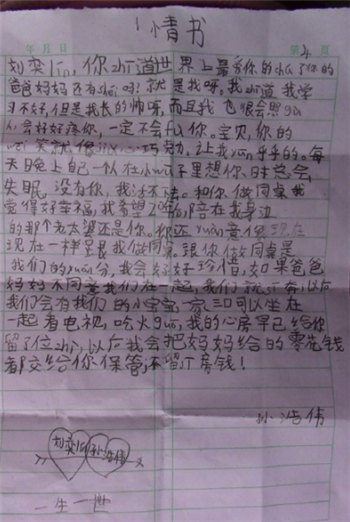 情书
年 月 日 第 页
刘奕lin，你zhi道世界上最爱你的chu了你的
爸爸妈妈还有shei吗？就是我呀。我zhi道我学
习不好，但是我长的帅呀，而且我也很会
会好好疼你，一定不会你。宝贝，你的
笑就像巧力，让我乎乎的。每
天晚上自己一个人在小里想你时总会
失眠，没有你，我活不下去。和你做同桌我
觉得好幸福，我希望20年陪在我身边
的那个老太婆还是你。你还意像现在
现在一样是我做同桌。跟你做同桌是
我们的yuan分，我会好好珍惜，如果爸爸
妈妈不同意我们在一起，我们就以后
我们会有我们的小宝宝一家三口可以坐在
一起看电视，吃火guo，我的心房早已给你
留了位zhi，以后我会把妈妈给的零花钱
都交给你保管，还留了房钱！
孙浩伟
刘奕lin 孙浩伟
一生一世